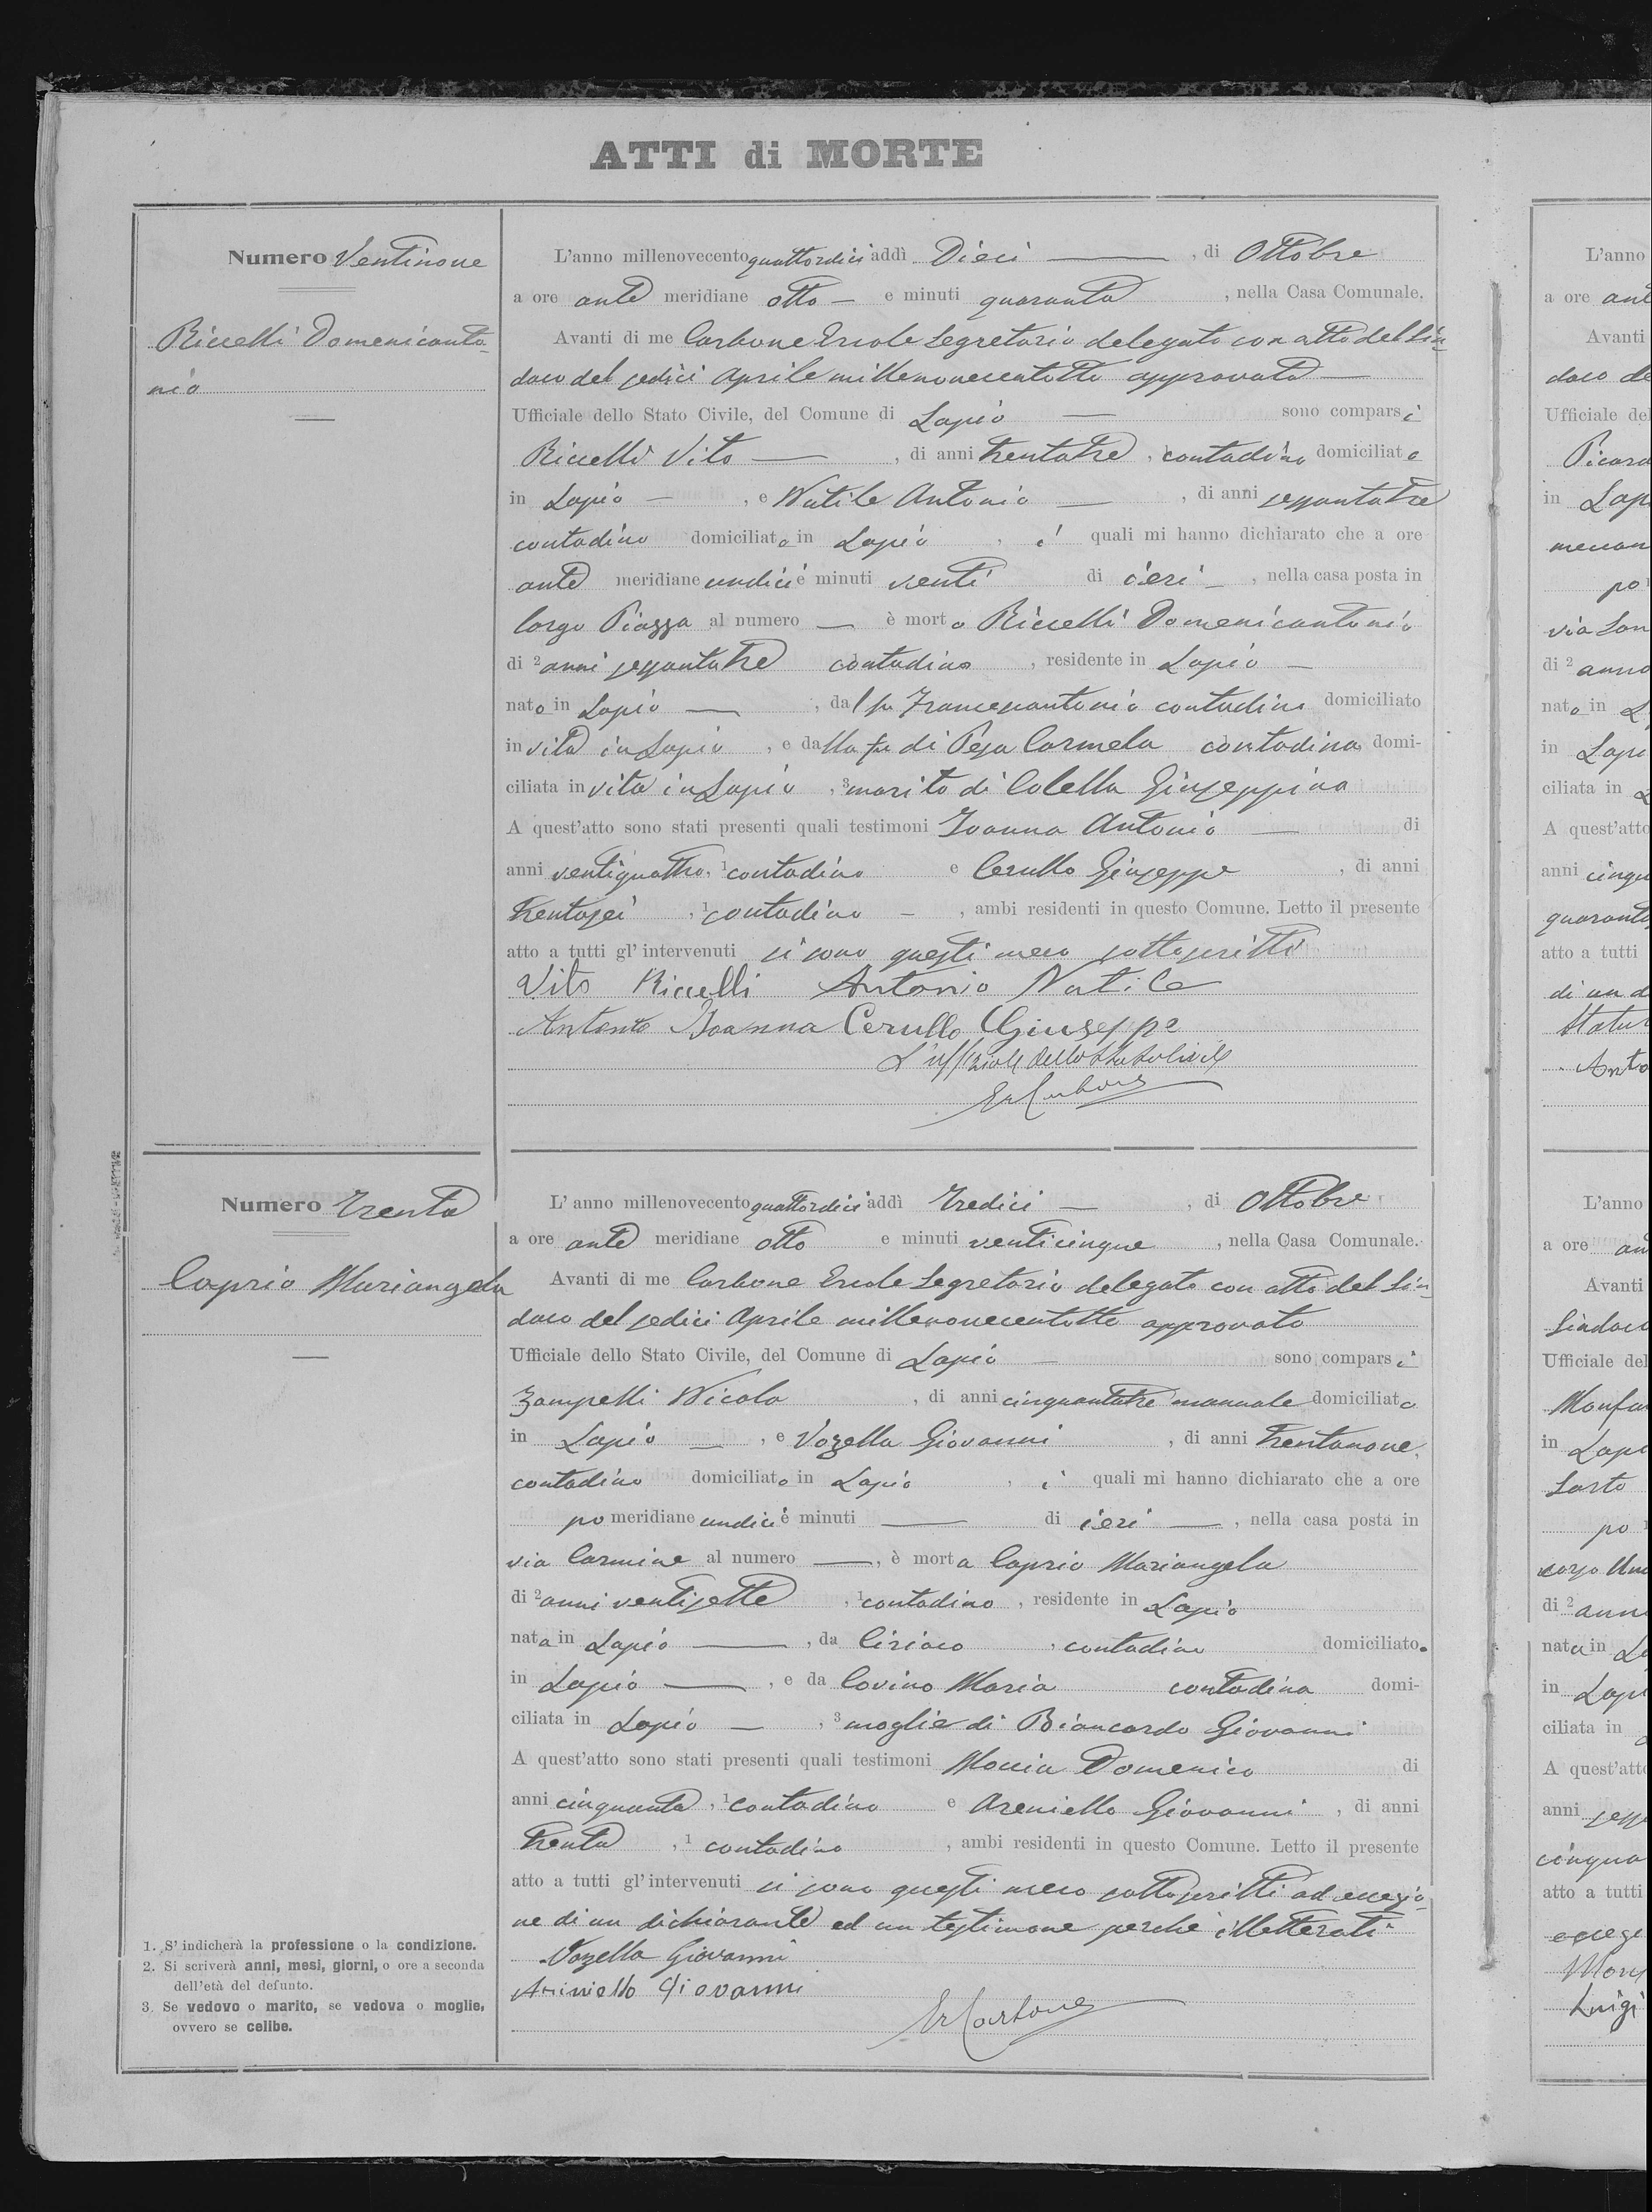 ATTI di MORTE
Numero Ventinove
Riccelli Domenicanto-
nio
L'anno millenovecento quattordici addì Dieci , di Ottobre
a ore ante meridiane otto — e minuti quaranta , nella Casa Comunale.
Avanti di me Carbone Ercole Segretario delegato con atto del Sin-
daco del sedici Aprile millenovecentotto approvato —
Ufficiale dello Stato Civile, del Comune di Lapio — sono comparsi
Riccelli Vito — , di anni trentatre , contadino domiciliato
in Lapio — , e Natile Antonio — , di anni sessantatre
contadino domiciliato in Lapio , i quali mi hanno dichiarato che a ore
ante meridiane undici e minuti venti di ieri — , nella casa posta in
largo Piazza al numero — è morto Riccelli Domenicantonio
di 2 anni sessantatre contadino , residente in Lapio —
nato in Lapio — , dal fu Francescantonio contadino domiciliato
in vita in Lapio , e dalla fu di Pesa Carmela contadina domi-
ciliata in vita in Lapio , 3 marito di Colella Giuseppina
A quest'atto sono stati presenti quali testimoni Ioanna Antonio — di
anni ventiquattro, 1 contadino e Cerullo Giuseppe , di anni
trentasei , 1 contadino — , ambi residenti in questo Comune. Letto il presente
atto a tutti gl'intervenuti si sono questi meco sottoscritti
Vito Riccelli Antonio Natile
Antonio Ioanna Cerullo Giuseppe
L'ufficiale dello Stato Civile
Er Carbone
Numero Trenta
Caprio Mariangela
L'anno millenovecento quattordici addì Tredici — , di Ottobre
a ore ante meridiane otto e minuti venticinque , nella Casa Comunale.
Avanti di me Carbone Ercole Segretario delegato con atto del Sin-
daco del sedici Aprile millenovecentotto approvato
Ufficiale dello Stato Civile, del Comune di Lapio — sono comparsi
Zampelli Nicola , di anni cinquantatre manuale domiciliato
in Lapio — , e Vozella Giovanni , di anni trentanove,
contadino domiciliato in Lapio , i quali mi hanno dichiarato che a ore
po meridiane undici e minuti — di ieri — , nella casa posta in
via Carmine al numero — , è morta Caprio Mariangela
di 2 anni ventisette , 1 contadina , residente in Lapio
nata in Lapio — , da Ciriaco , contadino domiciliato
in Lapio — , e da Covino Maria contadina domi-
ciliata in Lapio — , 3 moglie di Biancardo Giovanni
A quest'atto sono stati presenti quali testimoni Moccia Domenico di
anni cinquanta , 1 contadino e Areniello Giovanni , di anni
trenta , 1 contadino , ambi residenti in questo Comune. Letto il presente
atto a tutti gl'intervenuti si sono questi meco sottoscritti ad eccezio-
ne di un dichiarante ed un testimone perchè illetterati
Vozella Giovanni
Ariniello Giovanni
Er Carbone
1. S'indicherà la professione o la condizione.
2. Si scriverà anni, mesi, giorni, o ore a seconda
dell'età del defunto.
3. Se vedovo o marito, se vedova o moglie,
ovvero se celibe.
L'anno
a ore
Avanti
Ufficiale del
in Lap
di 2 anni
nato in
in Lapi
ciliata in
A quest'atto
anni cinqu
quaranta
atto a tutti
di un d
Anto
L'anno
a ore
Avanti
Sindaco
Ufficiale del
in Lapi
Sarto
po
di 2 anni
nata in
in Lapi
ciliata in
A quest'atto
anni
cinqua
atto a tutti
Luigi